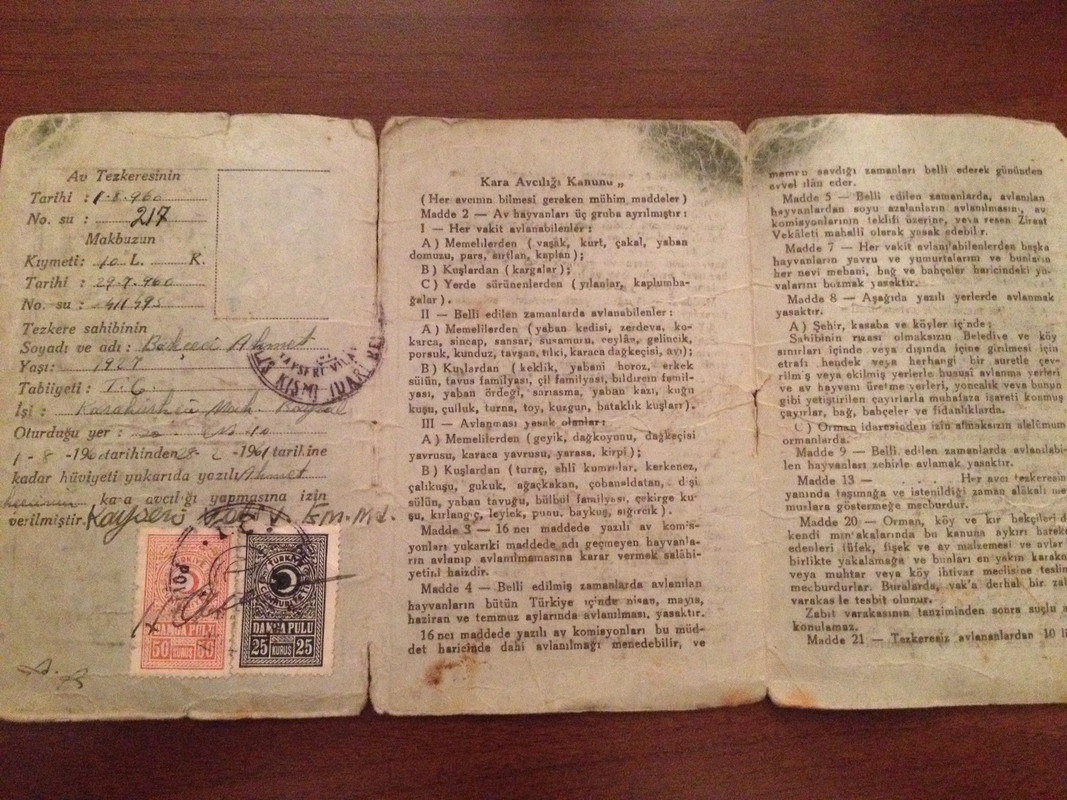 Av Tezkeresinin
Tarihi : 1.8.960
No. su : 217
Makbuzun
Kıymeti: 10 L. K.
Tarihi : 29.7.960
No. su :
Tezkere sahibinin
Soyadı ve adı: Ahmet
Yaşı: 1927
Tabiiyeti: T.C.
İşi :
Oturduğu yer :
1 - 8 -1960 tarihinden 28- 2 -1961 tarihine
kadar hüviyeti yukarıda yazılı Ahmet
kara avcılığı yapmasına izin
verilmiştir. Kayseri
DAMGA PULU
50 KURUŞ 50
DAMGA PULU
25 KURUŞ 25
Kara Avcılığı Kanunu „
( Her avcının bilmesi gereken mühim maddeler)
Madde 2 — Av hayvanları üç gruba ayrılmıştır :
I — Her vakit avlanabilenler :
A ) Memelilerden ( vaşak, kurt, çakal, yaban
domuzu, pars, sırtlan, kaplan ) ;
B ) Kuşlardan ( kargalar) ;
C ) Yerde sürünenlerden ( yılanlar, kaplumba-
ğalar ) .
II — Belli edilen zamanlarda avlanabilenler :
A ) Memelilerden ( yaban kedisi, zerdeva, ko-
karca, sincap, sansar, susamuru, ceylân, gelincik,
porsuk, kunduz, tavşan, tilki, karaca dağkeçisi, ayı) ;
B ) Kuşlardan ( keklik, yabani horoz, erkek
sülün, tavus familyası, çil familyası, bıldırcın famil-
yası, yaban ördeği, sarıasma, yaban kazı, kuğu
kuşu, çulluk, turna, toy, kuzgun, bataklık kuşları ).
III — Avlanması yasak olanlar :
A ) Memelilerden ( geyik, dağkoyunu, dağkeçisi
yavrusu, karaca yavrusu, yarasa, kirpi ) ;
B ) Kuşlardan ( turaç, ehli kumrular, kerkenez,
çalıkuşu, guguk, ağaçkakan, çobanaldatan, dişi
sülün, yaban tavuğu, bülbül familyası, çekirge ku-
şu, kırlangıç, leylek, puhu, baykuş, sığırcık ) .
Madde 3 — 16 ncı maddede yazılı av komis-
yonları yukarıki maddede adı geçmeyen hayvanla-
rın avlanıp avlanılmamasına karar vermek salâhi-
yetini haizdir.
Madde 4 — Belli edilmiş zamanlarda avlanılan
hayvanların bütün Türkiye içinde nisan, mayıs,
haziran ve temmuz aylarında avlanılması, yasaktır.
16 ncı maddede yazılı av komisyonları bu müd-
det haricinde dahi avlanılmağı menedebilir, ve
memnu saydığı zamanları belli ederek gününden
evvel ilân eder.
Madde 5 — Belli edilen zamanlarda, avlanılan
hayvanlardan soyu azalanların avlanılmasını, av
komisyonlarının teklifi üzerine, veya resen Ziraat
Vekâleti mahalli olarak yasak edebilir.
Madde 7 — Her vakit avlanabilenlerden başka
hayvanların yavru ve yumurtalarını ve bunların
her nevi mebani, bağ ve bahçeler haricindeki yu-
valarını bozmak yasaktır.
Madde 8 — Aşağıda yazılı yerlerde avlanmak
yasaktır.
A ) Şehir, kasaba ve köyler içinde ;
Sahibinin rızası olmaksızın Belediye ve köy
sınırları içinde veya dışında içine girilmesi için
etrafı hendek veya herhangi bir suretle çev-
rilmiş veya ekilmiş yerlerle hususi avlanma yerleri
ve av hayvanı üretme yerleri, yoncalık veya bunun
gibi yetiştirilen çayırlarla muhafaza işareti konmuş
çayırlar, bağ, bahçeler ve fidanlıklarda.
C ) Orman idaresinden izin almaksızın alelûmum
ormanlarda.
Madde 9 — Belli edilen zamanlarda avlanılabi-
len hayvanları zehirle avlamak yasaktır.
Madde 13 — Her avcı tezkeresini
yanında taşımağa ve istenildiği zaman alâkalı me-
murlara göstermeğe mecburdur.
Madde 20 — Orman, köy ve kır bekçileri
kendi mıntakalarında bu kanuna aykırı hareket
edenleri tüfek, fişek ve av malzemesi ve avlar
birlikte yakalamağa ve bunları en yakın karakol
veya muhtar veya köy ihtiyar meclisine teslim
mecburdurlar. Buralarda, vak'a derhal bir zabıt
varakası le tesbit olunur.
Zabıt varakasının tanziminden sonra suçlu
konulamaz.
Madde 21 — Tezkeresiz avlananlardan 10